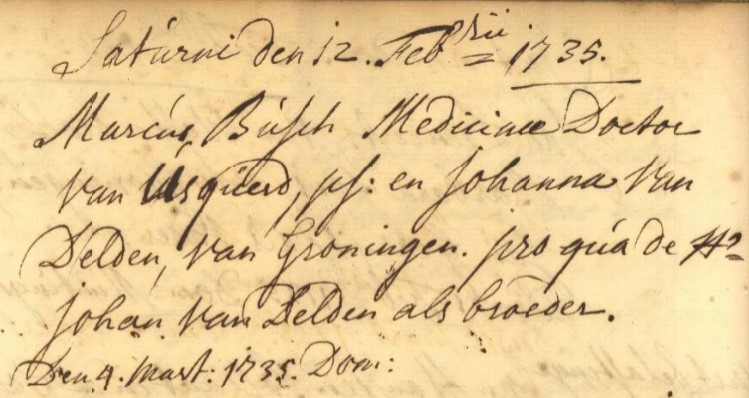 Saturni den 12. Feb^rii 1735.
Marcus Busch Medicinae Doctor
van Usquerd, ps: en Johanna van
Delden, van Groningen. pro qua de Hr
Johan van Delden als broeder.
Den 4. Mart: 1735. Dom: